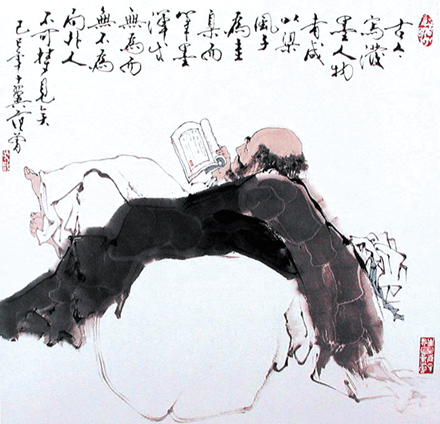 古今
寫潑
墨人物
者咸
以梁
風子
為圭
臬而
筆墨
渾成
無為而
無不為
局外人
不可夢見矣
己巳年十翼范曾